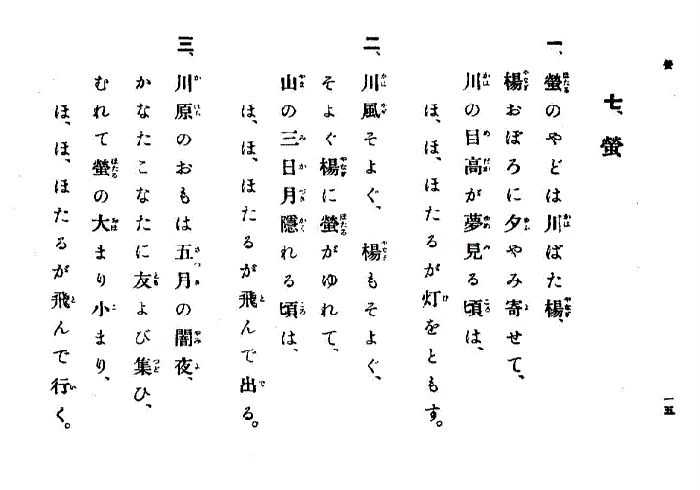 螢
一五
七、螢
一、螢のやどは川ばた楊、
楊おぼろに夕やみ寄せて、
川の目高が夢見る頃は、
ほ、ほ、ほたるが灯をともす。
二、川風そよぐ、楊もそよぐ、
そよぐ楊に螢がゆれて、
山の三日月隱れる頃は、
ほ、ほ、ほたるが飛んで出る。
三、川原のおもは五月の闇夜、
かなたこなたに友よび集ひ、
むれて螢の大まり小まり、
ほ、ほ、ほたるが飛んで行く。